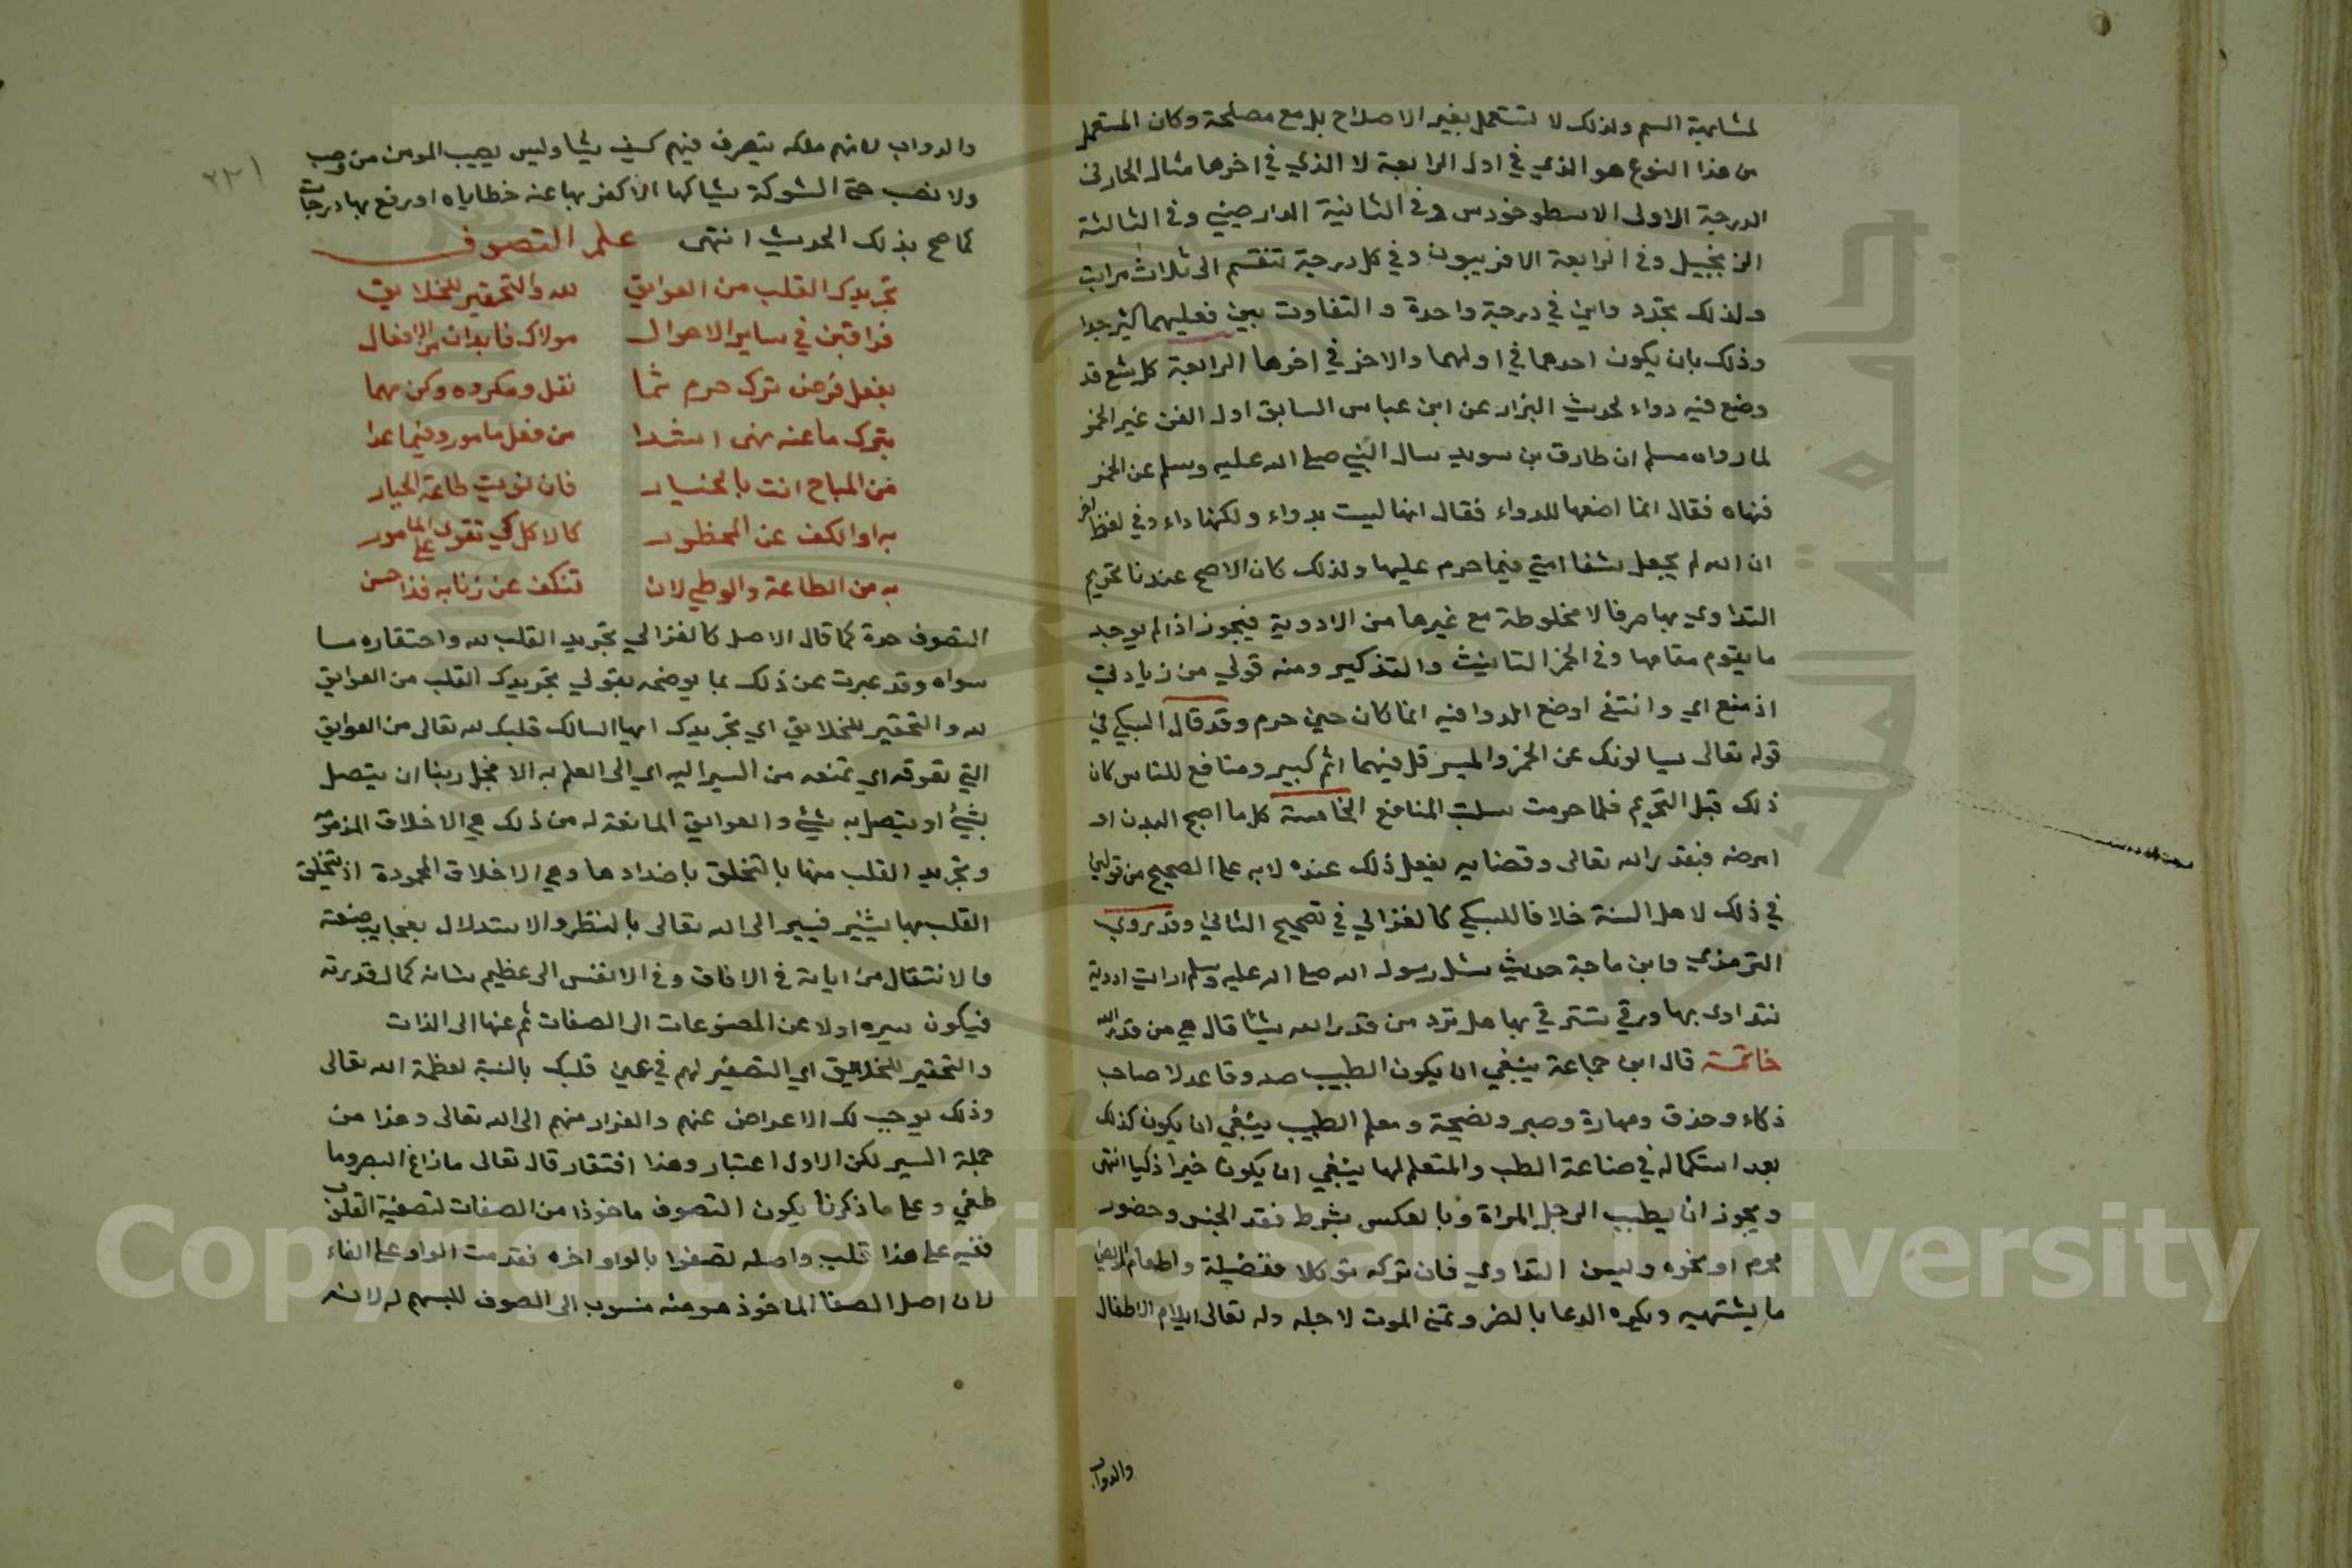 لمشابهة السم ولذلك لا تستعمل بغير الاصلاح بل مع مصلحة وكان المستعمل
من هذا النوع هو الذي في اول الرابعة لا الذي في اخرها مثال الحار في
الدرجة الاولى الاسطوخودس وفي الثانية الدارصيني وفي الثالثة
الزنجبيل وفي الرابعة الافربيون وفي كل درجة تنقسم الى ثلاث مراتب
ولذلك تجد دواين في درجة واحدة والتفاوت بين فعليهما كثير جدا
وذلك بان يكون احدهما في اولهما والاخر في اخرها الرابعة كل شئ قد
وضع فيه دواء لحديث البزار عن ابن عباس السابق اول الفن غير الخمر
لما رواه مسلم ان طارق بن سويد سال النبي صلى الله عليه وسلم عن الخمر
فنهاه فقال انما اضعها للدواء فقال انها ليست بدواء ولكنها داء وفي لفظ
ان الله لم يجعل شفا امتي فيما حرم عليها ولذلك كان الاصح عندنا تحريم
التداوي بها صرفا لا مخلوطة مع غيرها من الادوية فيجوز اذا لم يوجد
ما يقوم مقامها وفي الخمر التانيث والتذكير ومنه قولي من زيادتي
اذ منع اي وانتفى اوضع الدوا فيه انما كان حين حرم وقد قال السبكي في
قوله تعالى يسالونك عن الخمر والميسر قل فيهما اثم كبير ومنافع للناس كان
ذلك قبل التحريم فلما حرمت سلبت المنافع الخامسة كل ما اصح البدن او
امرضه فبقدر الله تعالى وقضايه يفعل ذلك عنده لا به على الصحيح من قولين
في ذلك لاهل السنة خلافا للسبكي كالغزالي في تصحيح الثاني وقد روي
الترمذي وابن ماجة حديث سئل رسول الله صلى الله عليه وسلم ارايت ادوية
نتداوى بها ورقي نسترقي بها هل ترد من قدر الله شيئا قال هي من قدر الله
خاتمة قال ابن جماعة ينبغي ان يكون الطبيب صدوقا عدلا صاحب
ذكاء وحذق ومهارة وصبر ونصيحة ومعلم الطبيب ينبغي ان يكون كذلك
بعد استكماله في صناعة الطب والمتعلم لها ينبغي ان يكون خيرا ذكيا انتهى
ويجوز ان يطبب الرجل المراة وبالعكس بشرط فقد الجنس وحضور
محرم او نحوه وليسن التداوي فان تركه توكلا ففضيلة واطعام المريض
ما يشتهيه ويكره الدعا بالضر وتمنى الموت لاجله وله تعالى ايلام الاطفال
والدواب
٢٢١
والدواب لانهم ملكه يتصرف فيهم كيف يشا وليس يصيب المومن من وصب
ولا نصب حتى الشوكة يشاكها الا كفر بها عنه خطاياه او رفع بها درجات
كما صح بذلك الحديث انتهى علم التصوف
تجريدك القلب من العوايق لله والتحقير للخلايق
فراقبن في ساير الاحوال مولاك فابدان من الافعال
بفعل فرض ترك حرم ثما نفل ومكروه وكن مهما
بترك ما عنه نهى اشدا من فعل مامور وفيما عدا
من المباح انت بالخيار فان نويت طاعة الجبار
به او الكف عن المحظور كالاكل كي تقوى على المامور
به من الطاعة والوطي لان تنكف عن زنا به فذا حسن
التصوف حدة كما قال الاصل كالغزالي تجريد القلب لله واحتقاره ما
سواه وقد عبرت عن ذلك بما يوضحه بقولي تجريدك القلب من العوايق
لله والتحقير للخلايق اي تجريدك ايها السالك قلبك لله تعالى من العوايق
التي تعوقه اي تمنعه من السير اليه اي الى العلم به الا فجل ربنا ان يتصل
بشئ او يتصل به شئ والعوايق المانعة له من ذلك هي الاخلاق المذمومة
وتجريد القلب منها بالتخلق باضدادها وهي الاخلاق المحمودة اذ بتخلق
القلب بها يتنير فيسير الى الله تعالى بالنظر والاستدلال بعجايب صنعته
والانتقال من اياته في الافاق وفي الانفس الى عظيم شانه كمال قدرته
فيكون سيره اولا عن المصنوعات الى الصفات ثم عنها الى الذات
والتحقير للخلايق اي التصغير لهم في عين قلبك بالنسبة لعظمة الله تعالى
وذلك يوجب لك الاعراض عنهم والفرار منهم الى الله تعالى وهذا من
جملة السير لكن الاول اعتبار وهذا افتقار قال تعالى ما زاغ البصر وما
طغي وعلى ما ذكرنا يكون التصوف ماخوذا من الصفات لتصفية القلب
ففيه على هذا قلب واصله تصفوا بالواو اخره فقدمت الواو على الفاء
لان اصل الصفا الماخوذ هو منه منسوب الى الصوف للبسهم له لانه